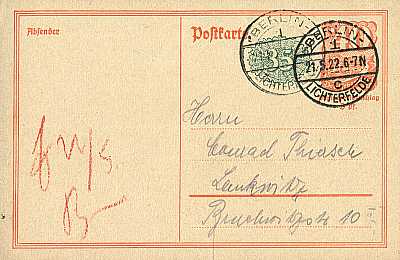 Absender
Postkarte
BERLIN-
LICHTERFELDE
35
BERLIN-
21.8.22.6-7N
c
LICHTERFELDE
Herrn
Conrad Thiasch
Lankwitz
Bruchwitzstr 10 I